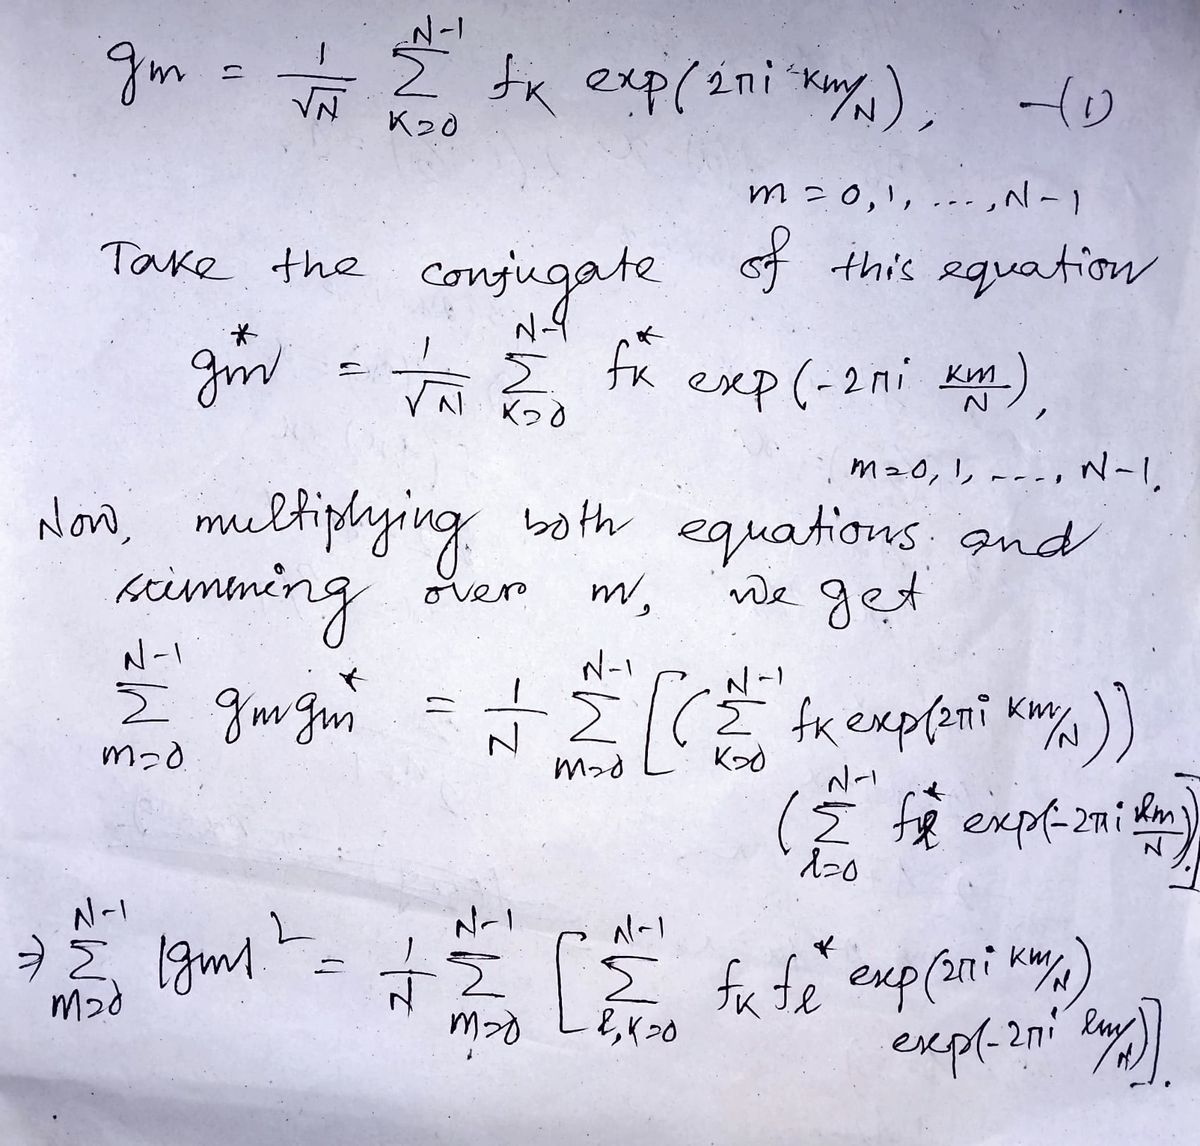 gm = 1/√N Σ_{K=0}^{N-1} f_K exp(2πi Km/N), —(1)
m = 0, 1, ..., N-1
Take the conjugate of this equation
gm* = 1/√N Σ_{K=0}^{N-1} f_K* exp(-2πi Km/N),
m=0, 1, ..., N-1.
Now, multiplying both equations and
summing over m, we get
Σ_{m=0}^{N-1} gm gm* = 1/N Σ_{m=0}^{N-1} [(Σ_{K=0}^{N-1} f_K exp(2πi Km/N))
(Σ_{l=0}^{N-1} f_l* exp(-2πi lm/N))].
⇒ Σ_{m=0}^{N-1} |gm|² = 1/N Σ_{m=0}^{N-1} [Σ_{l,K=0}^{N-1} f_K f_l* exp(2πi Km/N)
exp(-2πi lm/N)].